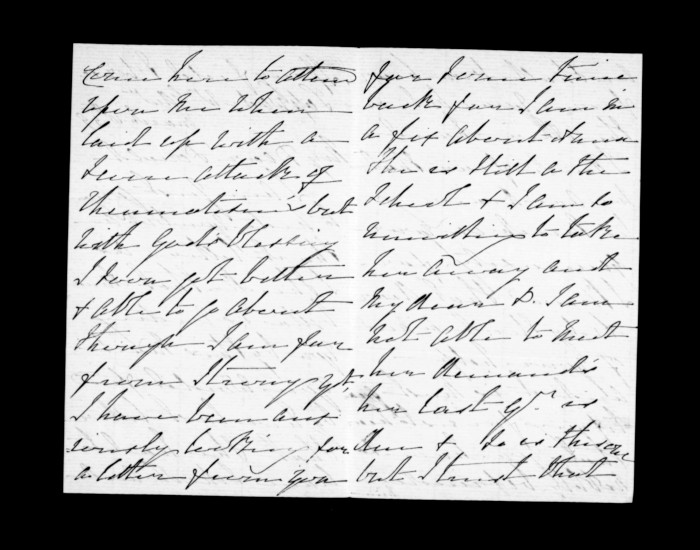 come here to attend
upon me when
laid up with a
severe attack of
rheumatism but
with Gods blessing
I soon got better
& able to go about
though I am far
from strong yet
I have been anx
iously looking for
a letter from you
for some time
back for I am in
a fix about
She is still at the
School & I am so
unwilling to take
her away and
my dear D. I am
not able to meet
her demands
her last qr. is
due & so is this one
but I trust that